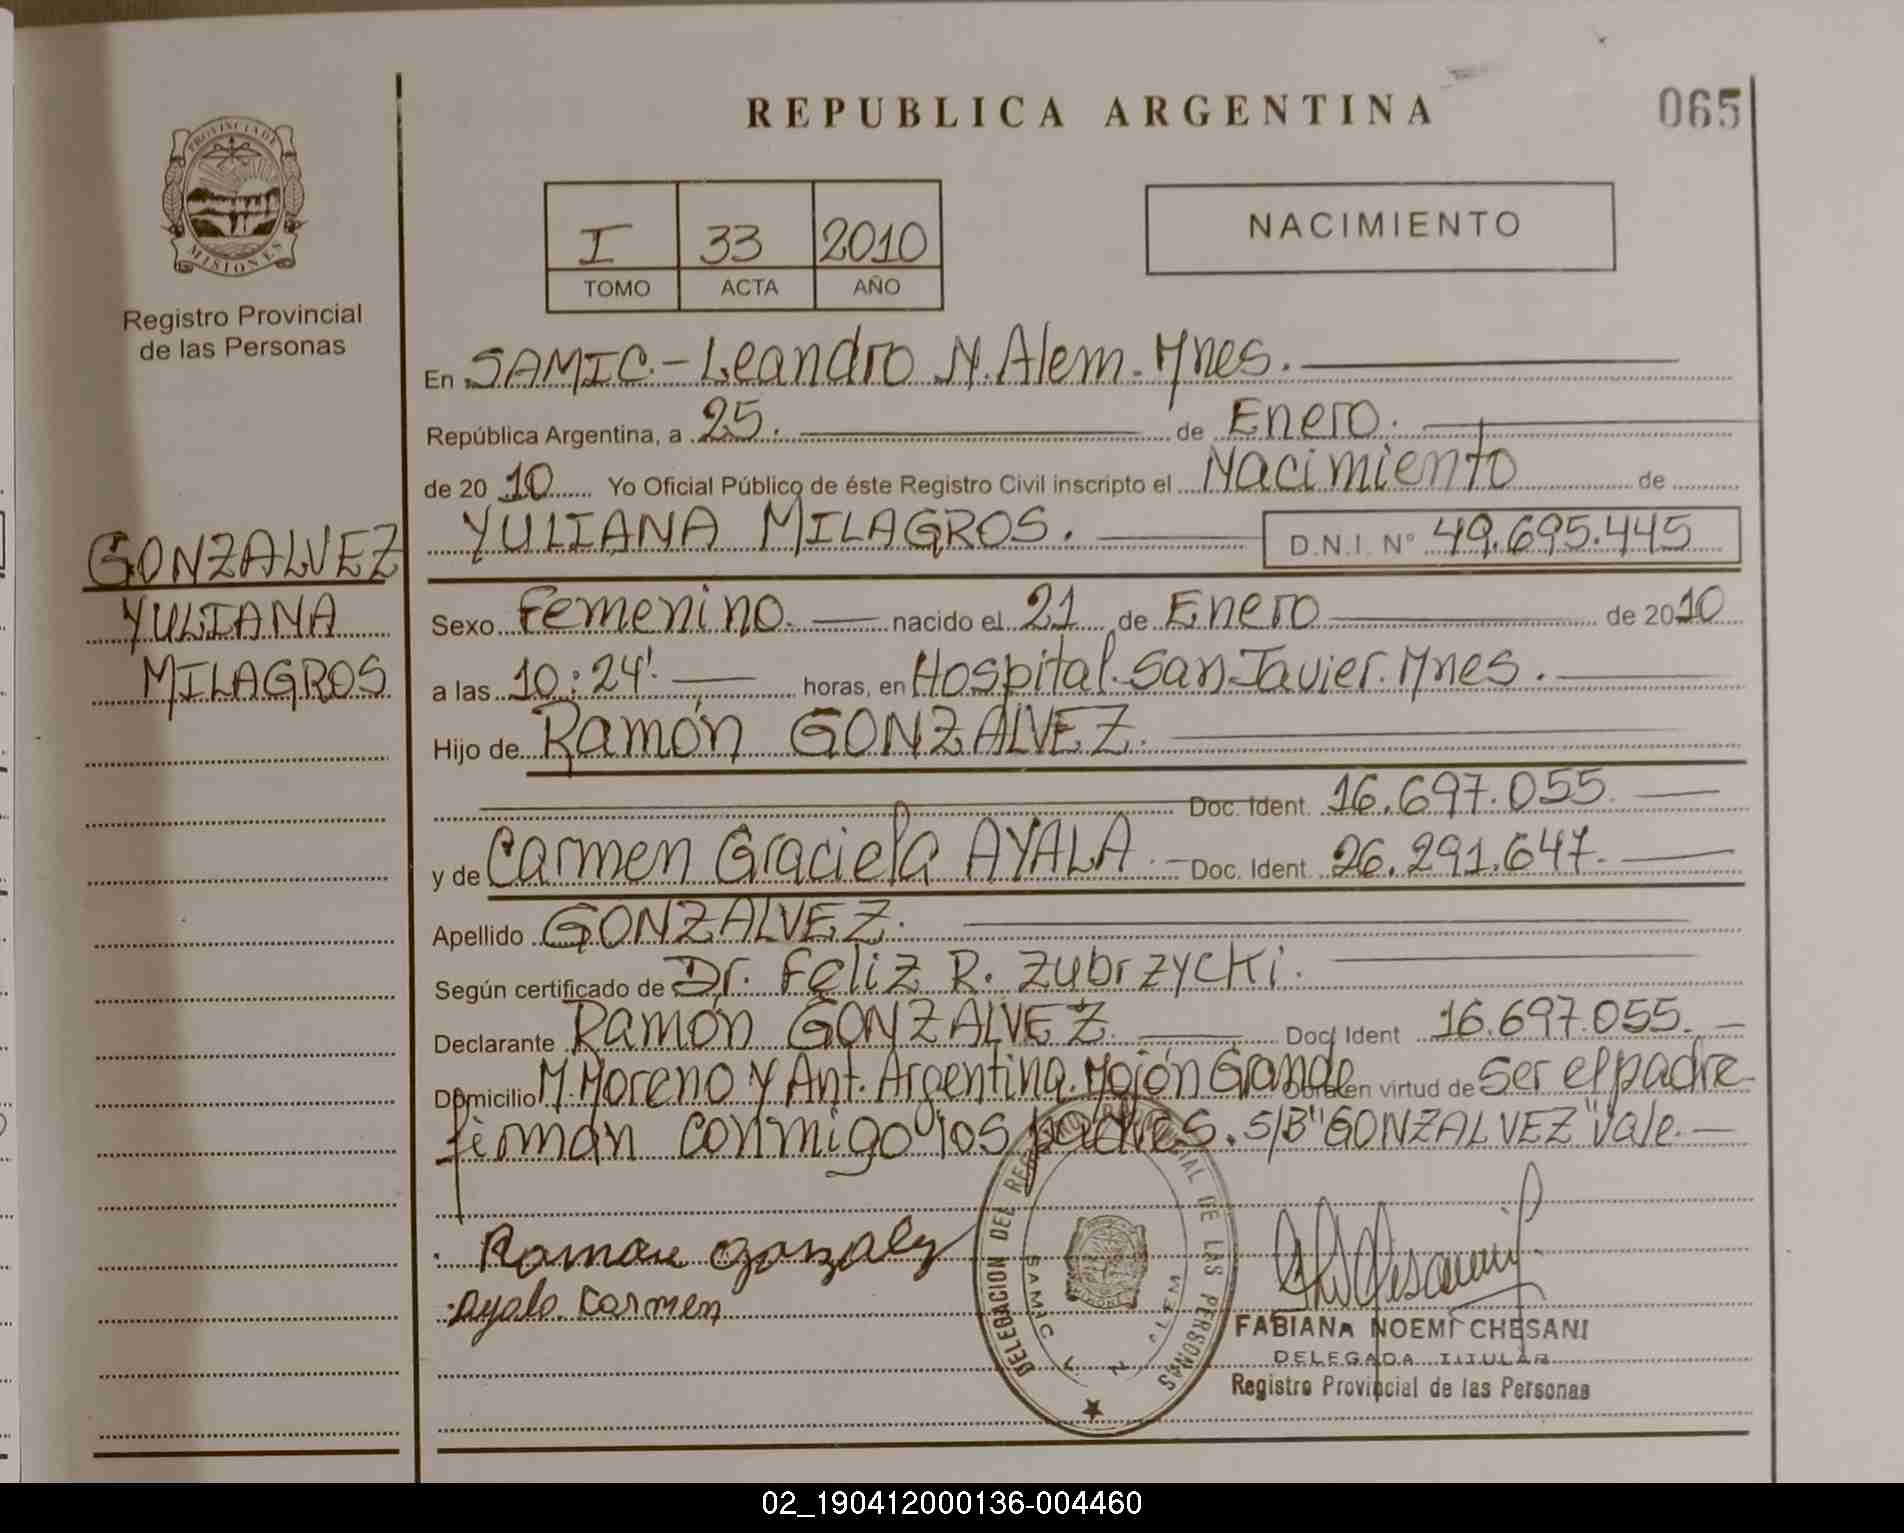 REPUBLICA ARGENTINA
065
PROVINCIA DE
MISIONES
Registro Provincial
de las Personas
I 33 2010
TOMO ACTA AÑO
NACIMIENTO
En SAMIC.-Leandro N. Alem. Mnes.
República Argentina, a 25. de Enero.
de 20 10 Yo Oficial Público de éste Registro Civil inscripto el Nacimiento de
YULIANA MILAGROS. D.N.I. Nº 49.695.445
GONZALVEZ
YULIANA
MILAGROS
Sexo Femenino. nacido el 21 de Enero de 2010
a las 10:24' horas, en Hospital San Javier. Mnes.
Hijo de Ramón GONZALVEZ.
Doc. Ident. 16.697.055.
y de Carmen Graciela AYALA. Doc. Ident. 26.291.647.
Apellido GONZALVEZ.
Según certificado de Dr. Feliz R. Zubrzycki.
Declarante Ramón GONZALVEZ. Doc. Ident 16.697.055.
Domicilio M. Moreno y Ant. Argentina. Mojón Grande en virtud de ser el padre
firman conmigo los padres. S/B "GONZALVEZ" Vale.
Ramon
Ayala Carmen
DELEGACION DEL DE LAS PERSONAS
SAMIC
FABIANA NOEMI CHESANI
DELEGADA TITULAR
Registro Provincial de las Personas
02_190412000136-004460